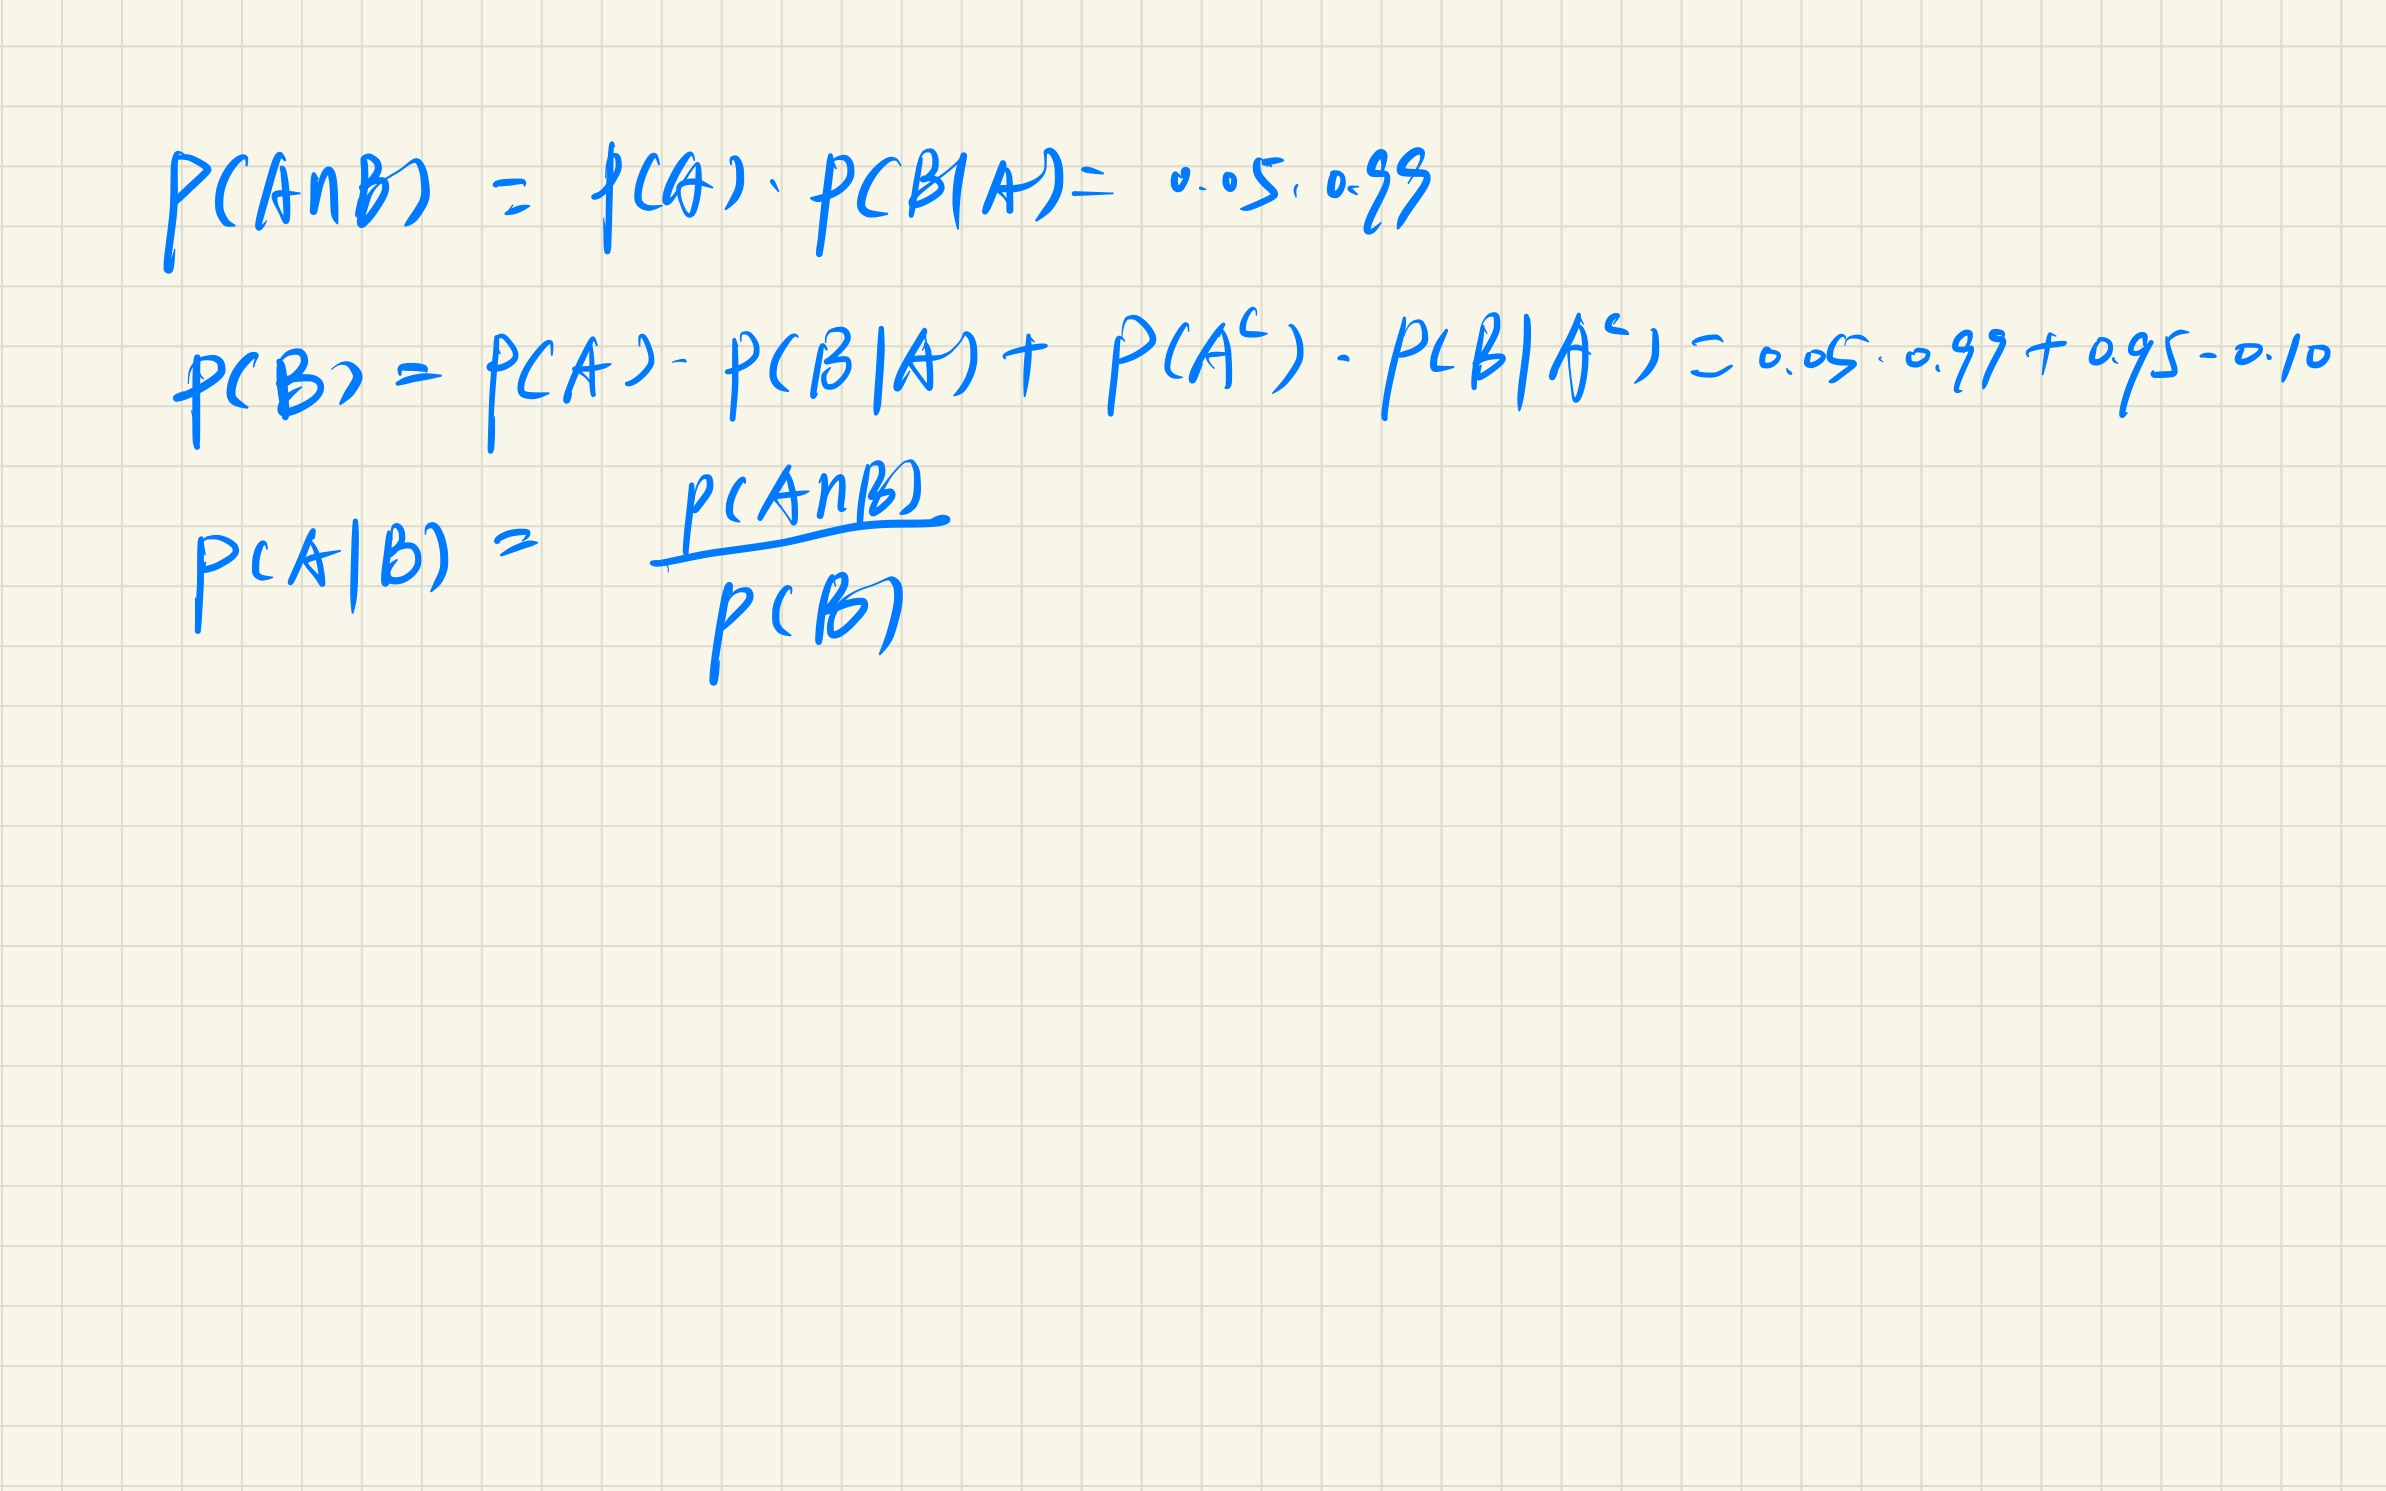 P(A∩B) = P(A) · P(B|A) = 0.05 · 0.99
P(B) = P(A) · P(B|A) + P(A^c) · P(B|A^c) = 0.05 · 0.99 + 0.95 · 0.10
P(A|B) = P(A∩B) / P(B)